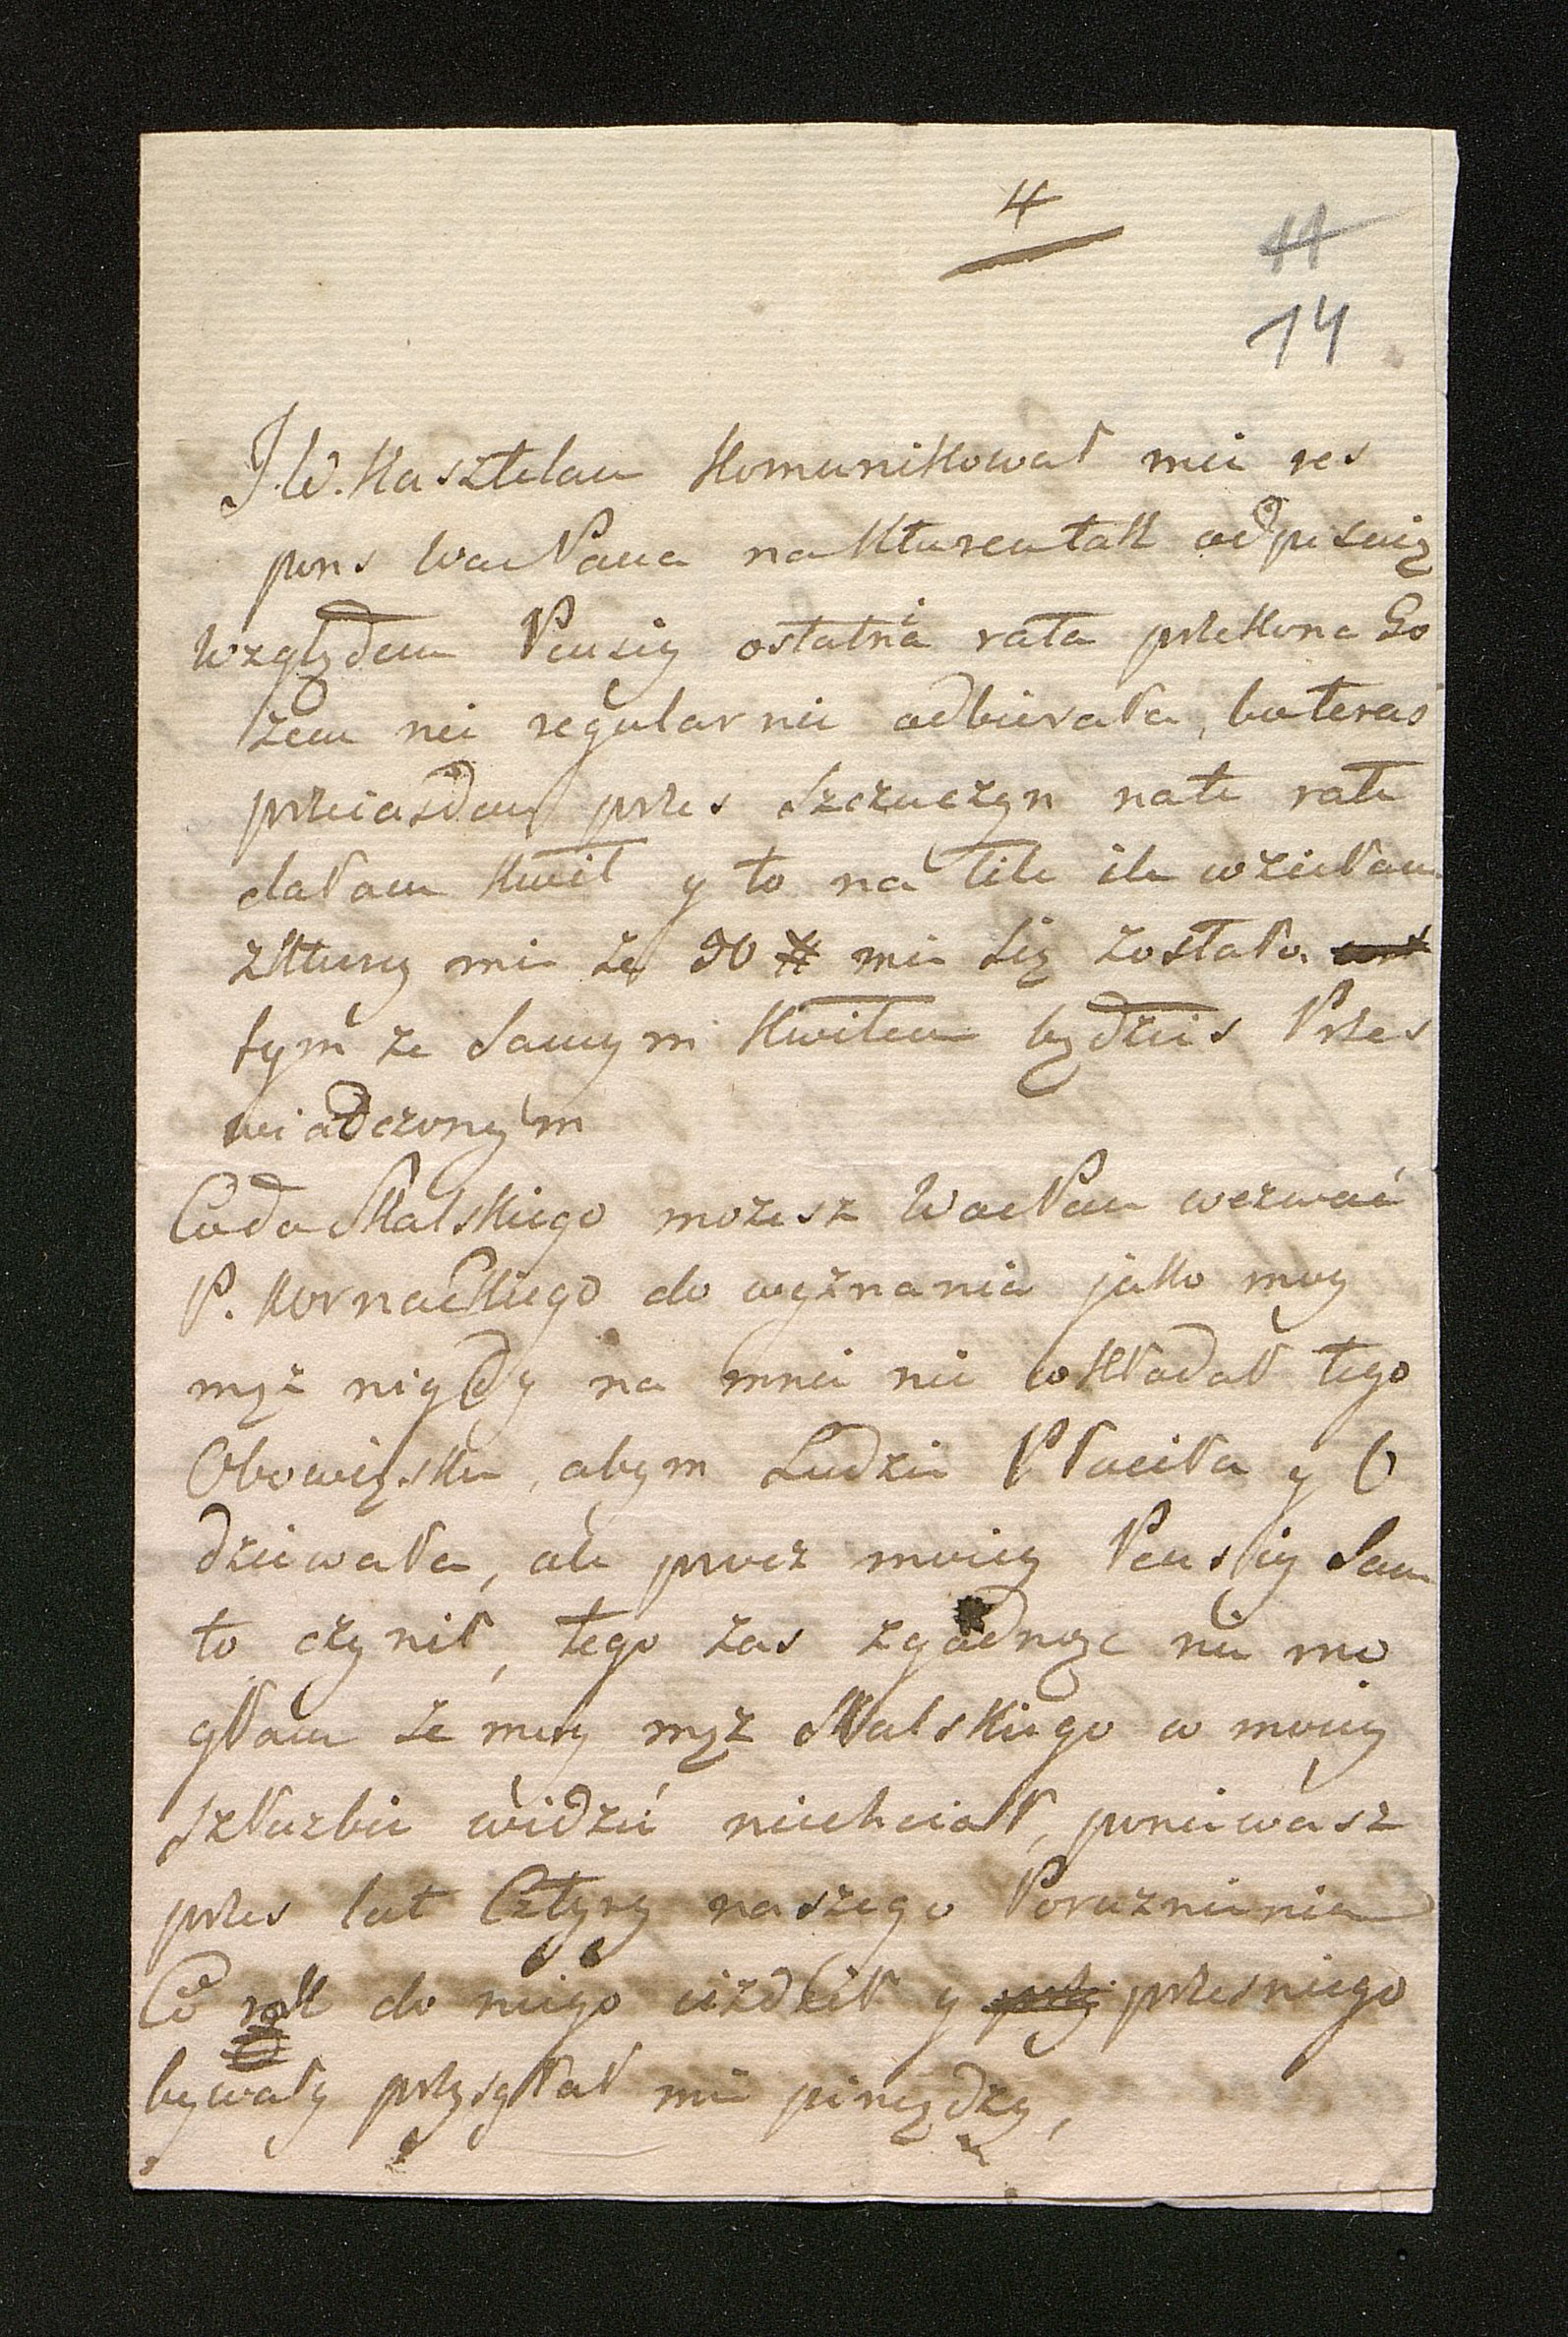 4
11
14
J.W. Kasztelan Komunikował mie res
pons WacPana na Kturen tak odpisuię
względem Pensiy ostatnia rata przekona Go
żem nie regularnie odbierała, bo teras
przeiasdem przes Szczuczyn na te rate
dałam kwit y to na tile ile wziełam
z Ktury mie że 90 # mie się zostało.
tym że samym kwitem będzies Przes
wiadczonym
Co do Skalskiego możesz WacPan wezwać
P. Kornackiego do wyznania jako muy
mąż nigdy na mnie nie wkładał tego
Obowiązku, abym Ludzie Płaciła y O
dziewała, ale procz moiey Pensiy Sam
to czynił, tego zas zgadnąc nie mo
głam że muy mąż Skalskiego w moiey
szłuzbie widzić niechciał, poniewasz
przes lat Cztyry naszego Poruznienia
Co rok do niego ieżdził y przy przesniego
bywały przysyłał mie piniądzy,